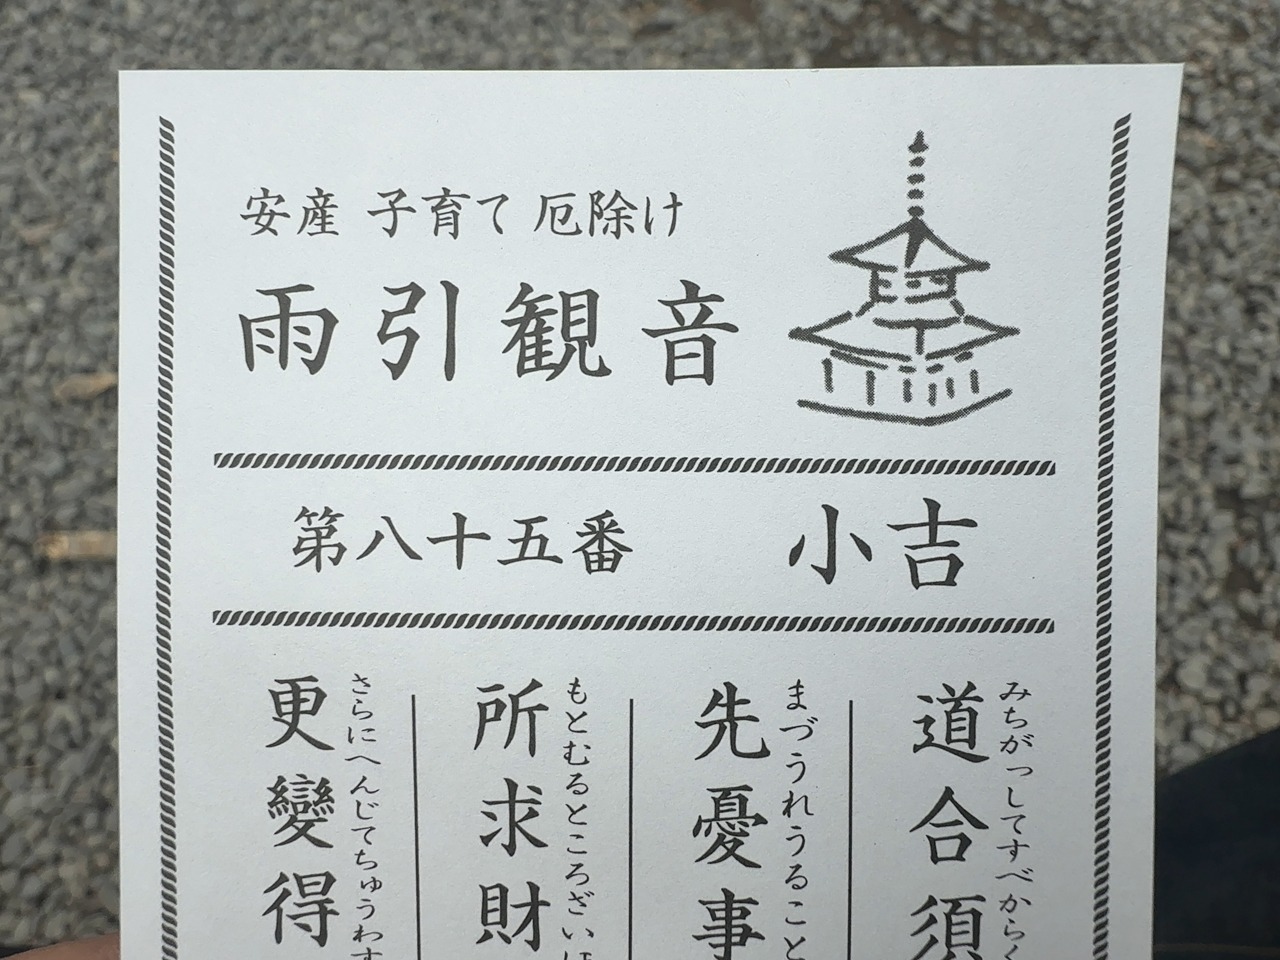 安産 子育て 厄除け
雨引観音
第八十五番 小吉
道合須
みちがっしてすべからく
先憂事
まづうれうること
所求財
もとむるところざいほ
更變得
さらにへんじてちゅうわす